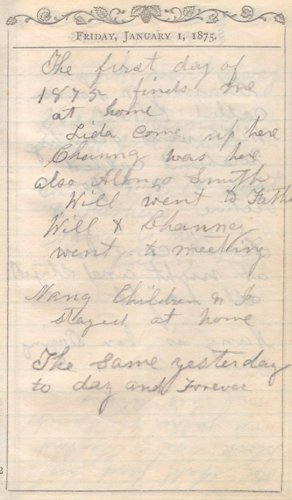 FRIDAY, JANUARY 1, 1875.
The first day of
1875 finds me
at home
Lida Come up here
Chaung was here
also Alonzo Smith
Will went to Fathe
Will & Chauncy
went to meeting
Nang Children &
stayed at home
The same yesterday
to day and Forever